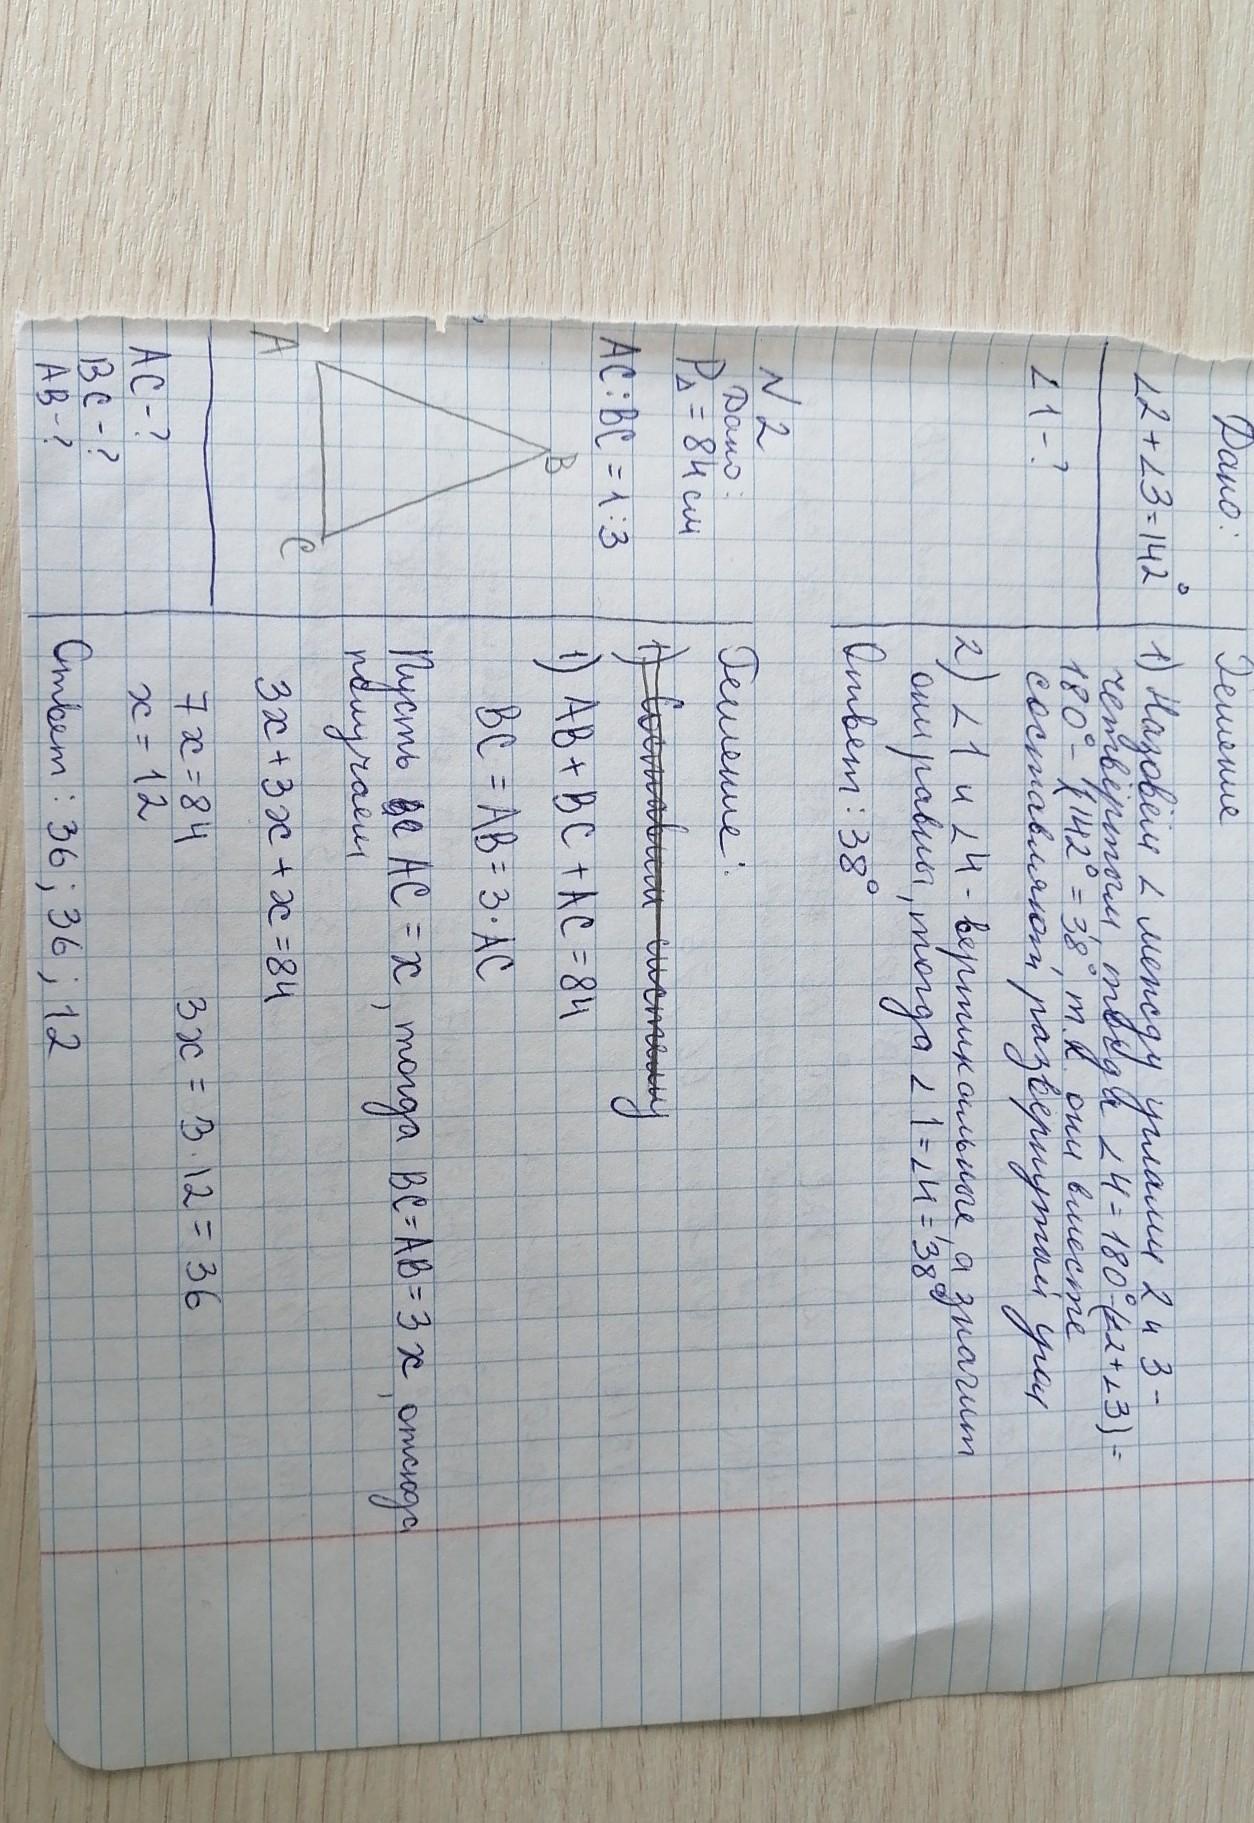 Дано:
∠2 + ∠3 = 142°
∠1 - ?
Решение
1) Назовём ∠ между углами 2 и 3 -
четвёртым, тогда ∠4 = 180° - (∠2 + ∠3) =
180° - 142° = 38°, т.к. они вместе
составляют развернутый угол
2) ∠1 и ∠4 - вертикальные, а значит
они равны, тогда ∠1 = ∠4 = 38°
Ответ: 38°
N 2
Дано:
P△ = 84 см
AC : BC = 1 : 3
B
A
C
AC - ?
BC - ?
AB - ?
Решение:
1) Составим систему
1) AB + BC + AC = 84
BC = AB = 3 · AC
Пусть AC = x, тогда BC = AB = 3x, отсюда
получаем
3x + 3x + x = 84
7x = 84
3x = 3 · 12 = 36
x = 12
Ответ: 36; 36; 12